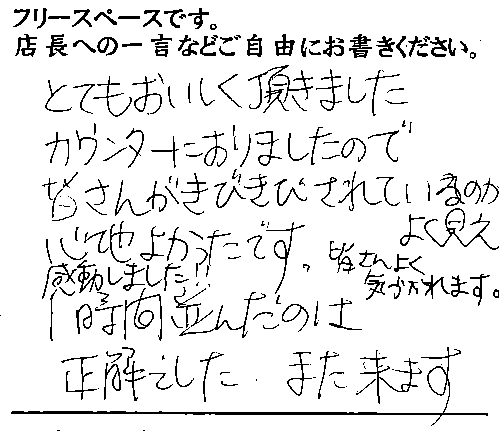 フリースペースです。
店長への一言などご自由にお書きください。
とてもおいしく頂きました
カウンターにおりましたので
皆さんがきびきびされているのが
よく見え
心地よかったです。
皆さんよく
気がつかれます。
感動しました!!
1時間並んだのは
正解でした。また来ます